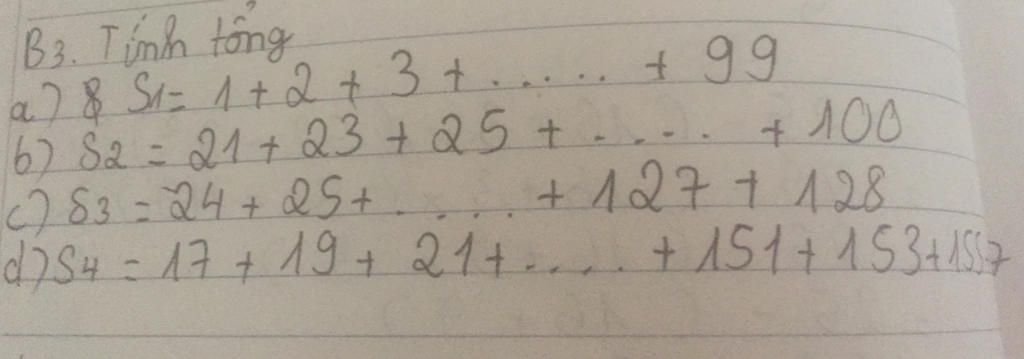 B3. Tính tổng
a) S1 = 1 + 2 + 3 + ...... + 99
b) S2 = 21 + 23 + 25 + ..... + 100
c) S3 = 24 + 25 + ..... + 127 + 128
d) S4 = 17 + 19 + 21 + ..... + 151 + 153 +